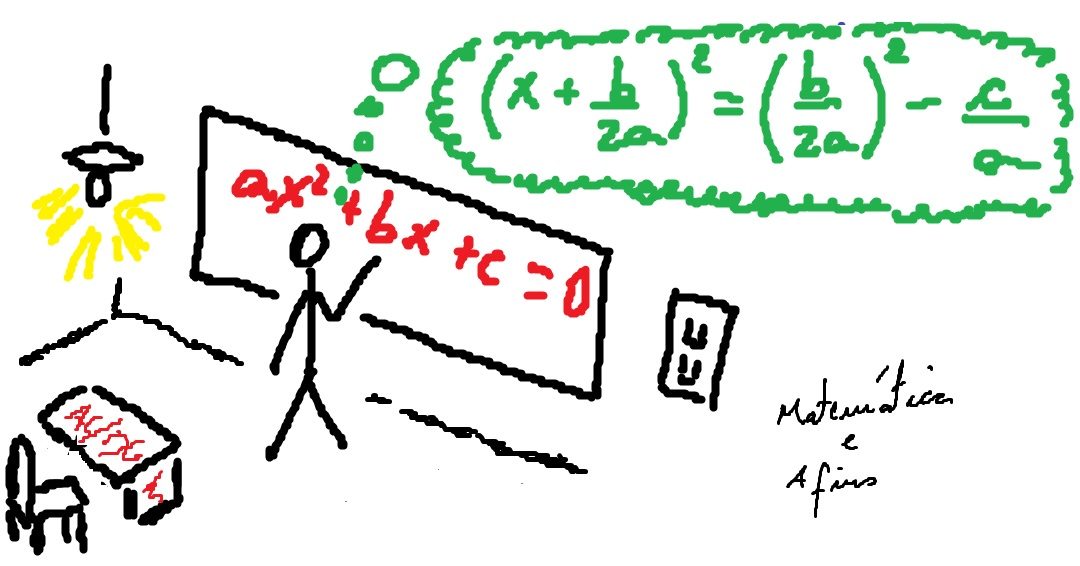 (x + b/2a)² = (b/2a)² - c/a
ax² + bx + c = 0
Matemática
e
Afins